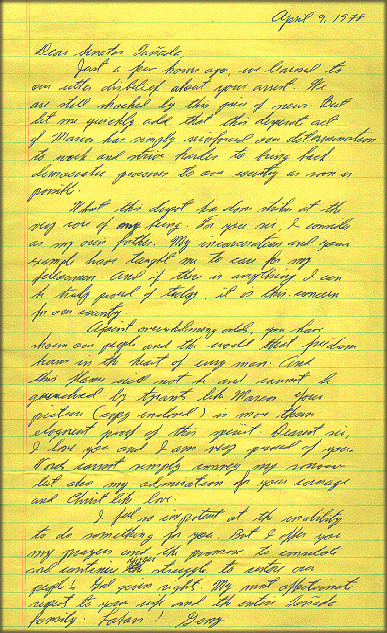 April 9, 1978
Dear Senator Tañada,
Just a few hours ago, we learned to
our utter disbelief about your arrest. We
are still shocked by this piece of news. But
let me quickly add that this desperate act
of Marcos has simply reinforced our determination
to work and strive harder to bring back
democratic processes to our country as soon as
possible.
What this despot has done strikes at the
very core of my being. For you sir, I consider
as my own father. My incarceration and your
example have taught me to care for my
fellowmen. And if there is anything I can
be truly proud of today, it is this concern
for our country.
Against overwhelming odds, you have
shown our people and the world that freedom
burns in the heart of every man. And
this flame will not be and cannot be
quenched by tyrants like Marcos. Your
picture (copy enclosed) is more than
eloquent proof of this spirit. Dearest sir,
I love you and I am very proud of you.
Words cannot simply convey my sorrow
but also my admiration for your courage
and Christ like love.
I feel so impotent at the inability
to do something for you. But I offer you
my prayers and the promise to
and continue the struggle to our
people's God given right. My most affectionate
respect to your wife and the entire Tañada
family.